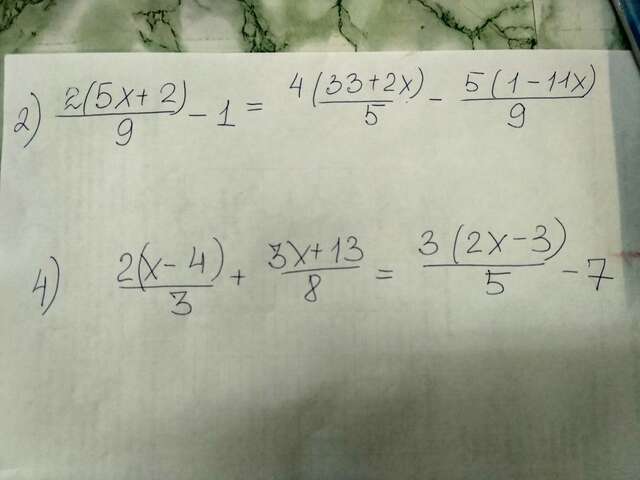 2) \frac{2(5x+2)}{9} - 1 = \frac{4(33+2x)}{5} - \frac{5(1-11x)}{9}
4) \frac{2(x-4)}{3} + \frac{3x+13}{8} = \frac{3(2x-3)}{5} - 7